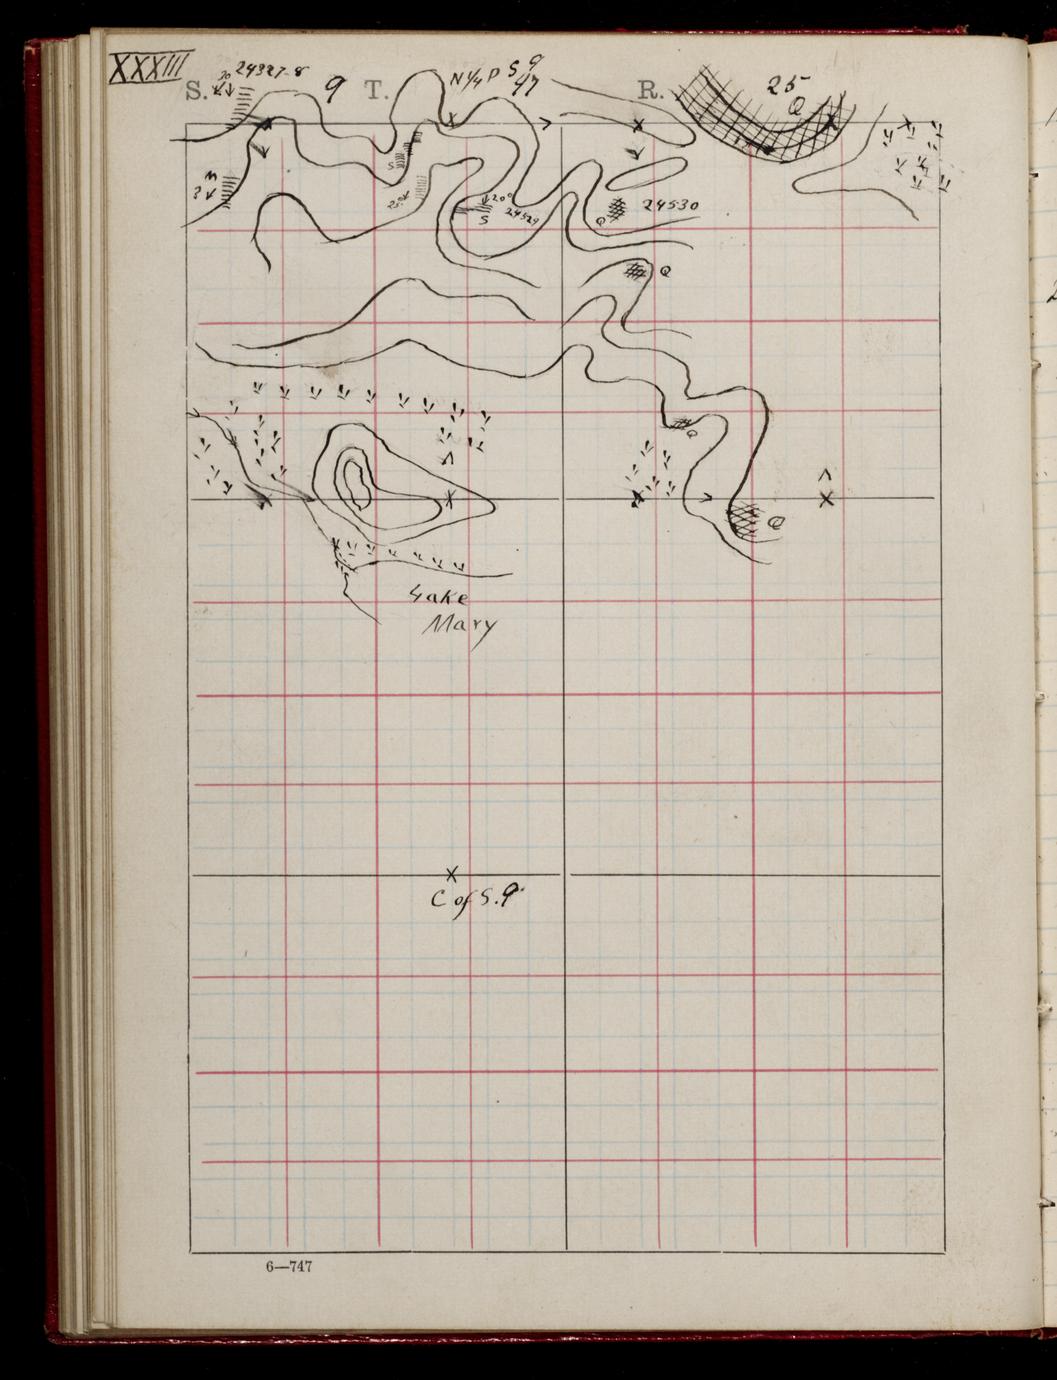 XXXIII
S. 9 T. 47 R. 25
20 24327-8
N 1/4 P S 9
Q
S
25°
20°
S
24529
Q
24530
Q
Q
Q
Lake
Mary
C of S. 9
6—747